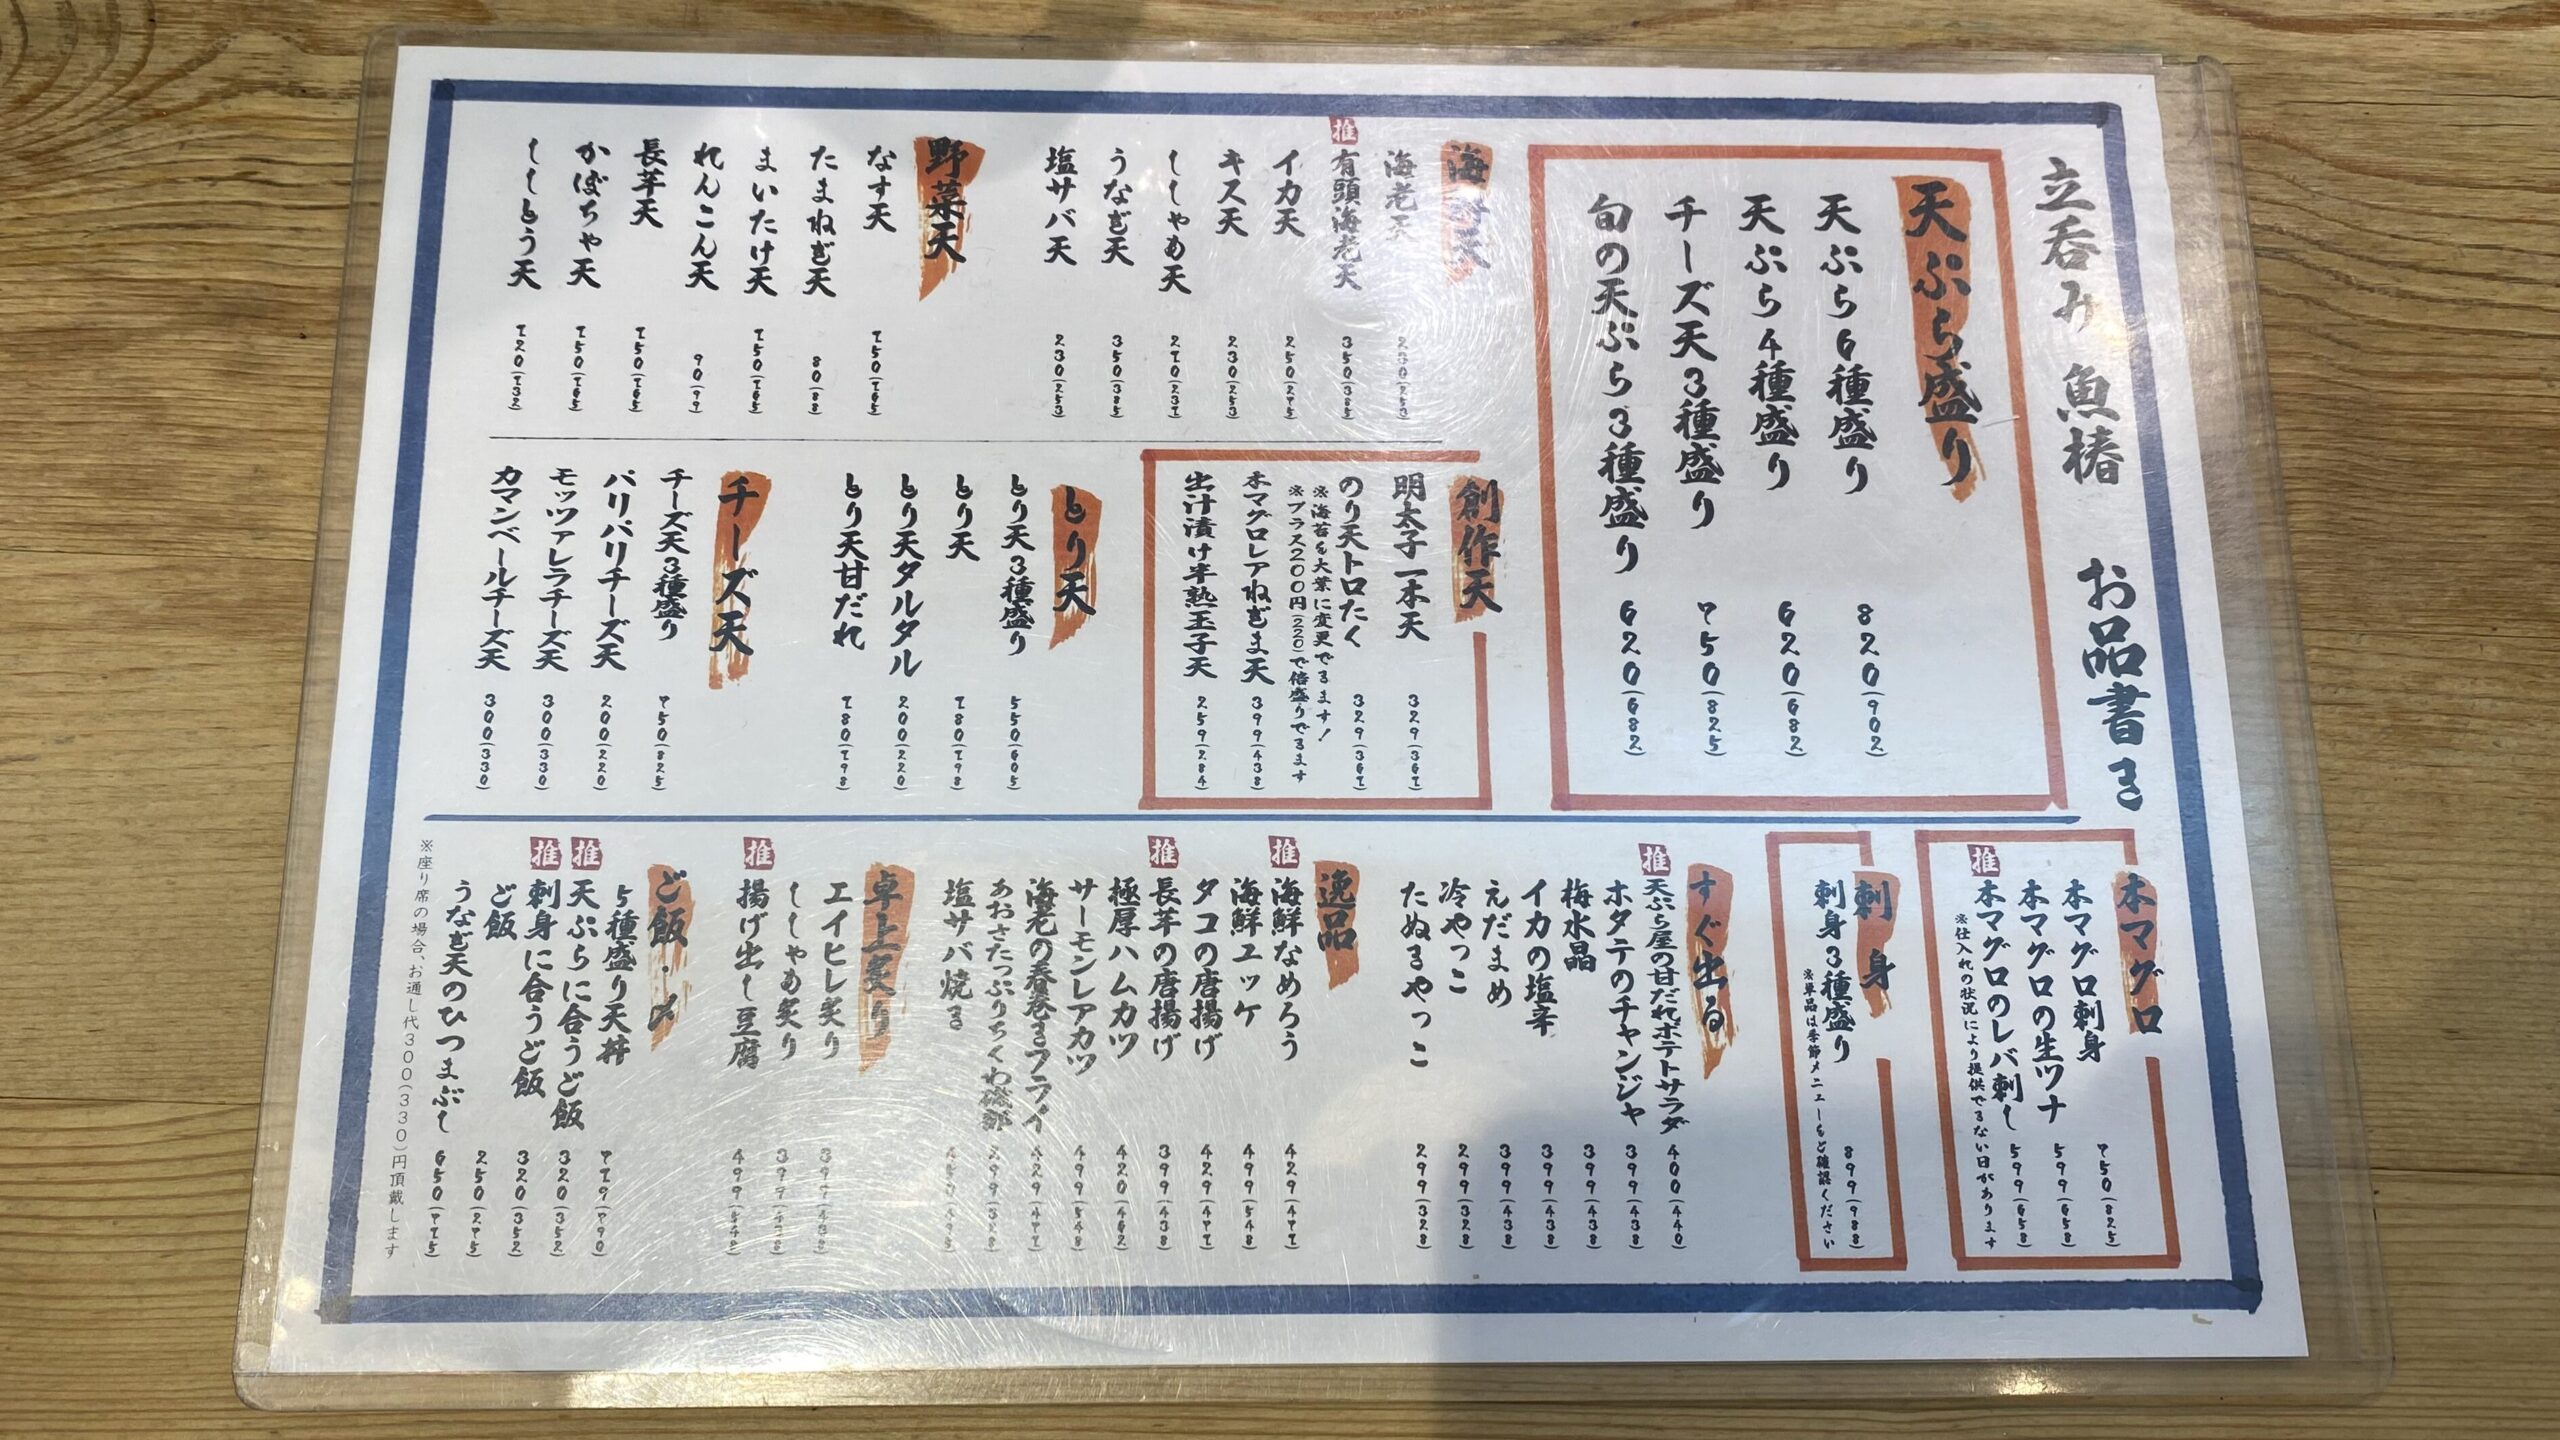 立呑み 魚椿 お品書き
天ぷら盛り
天ぷら6種盛り 820(902)
天ぷら4種盛り 620(682)
チーズ天3種盛り 750(825)
旬の天ぷら3種盛り 620(682)
海鮮天
海老天 230(253)
推 有頭海老天 350(385)
イカ天 250(275)
キス天 230(253)
ししゃも天 210(231)
うなぎ天 350(385)
塩サバ天 230(253)
野菜天
なす天 150(165)
たまねぎ天 80(88)
まいたけ天 150(165)
れんこん天 90(99)
長芋天 150(165)
かぼちゃ天 150(165)
ししとう天 120(132)
創作天
明太子一本天 329(361)
のり天トロたく 329(361)
※海苔を大葉に変更できます!
※プラス200円(220)で倍盛りできます
本マグロレアねぎま天 399(438)
出汁漬け半熟玉子天 259(284)
とり天
とり天3種盛り 550(605)
とり天 180(198)
とり天タルタル 200(220)
とり天甘だれ 180(198)
チーズ天
チーズ天3種盛り 750(825)
パリパリチーズ天 200(220)
モッツァレラチーズ天 300(330)
カマンベールチーズ天 300(330)
本マグロ
本マグロ刺身 750(825)
本マグロの生ツナ 599(658)
推 本マグロのレバ刺し 599(658)
※仕入れの状況により提供できない日があります
刺身
刺身3種盛り 899(988)
※単品は季節メニューをご確認ください
すぐ出る
推 天ぷら屋の甘だれポテトサラダ 400(440)
ホタテのチャンジャ 399(438)
梅水晶 399(438)
イカの塩辛 399(438)
えだまめ 399(438)
冷やっこ 299(328)
たぬきやっこ 299(328)
逸品
推 海鮮なめろう 429(471)
海鮮ユッケ 499(548)
タコの唐揚げ 429(471)
推 長芋の唐揚げ 399(438)
極厚ハムカツ 420(462)
サーモンレアカツ 499(548)
海老の春巻きフライ 429(471)
あおさたっぷりちくわ磯部 299(328)
塩サバ焼き 450(495)
卓上炙り
エイヒレ炙り 399(438)
ししゃも炙り 399(438)
推 揚げ出し豆腐 499(548)
ご飯・〆
5種盛り天丼 719(790)
推 天ぷらに合うご飯 320(352)
推 刺身に合うご飯 320(352)
ご飯 250(275)
うなぎ天のひつまぶし 650(715)
※座り席の場合、お通し代300(330)円頂戴します